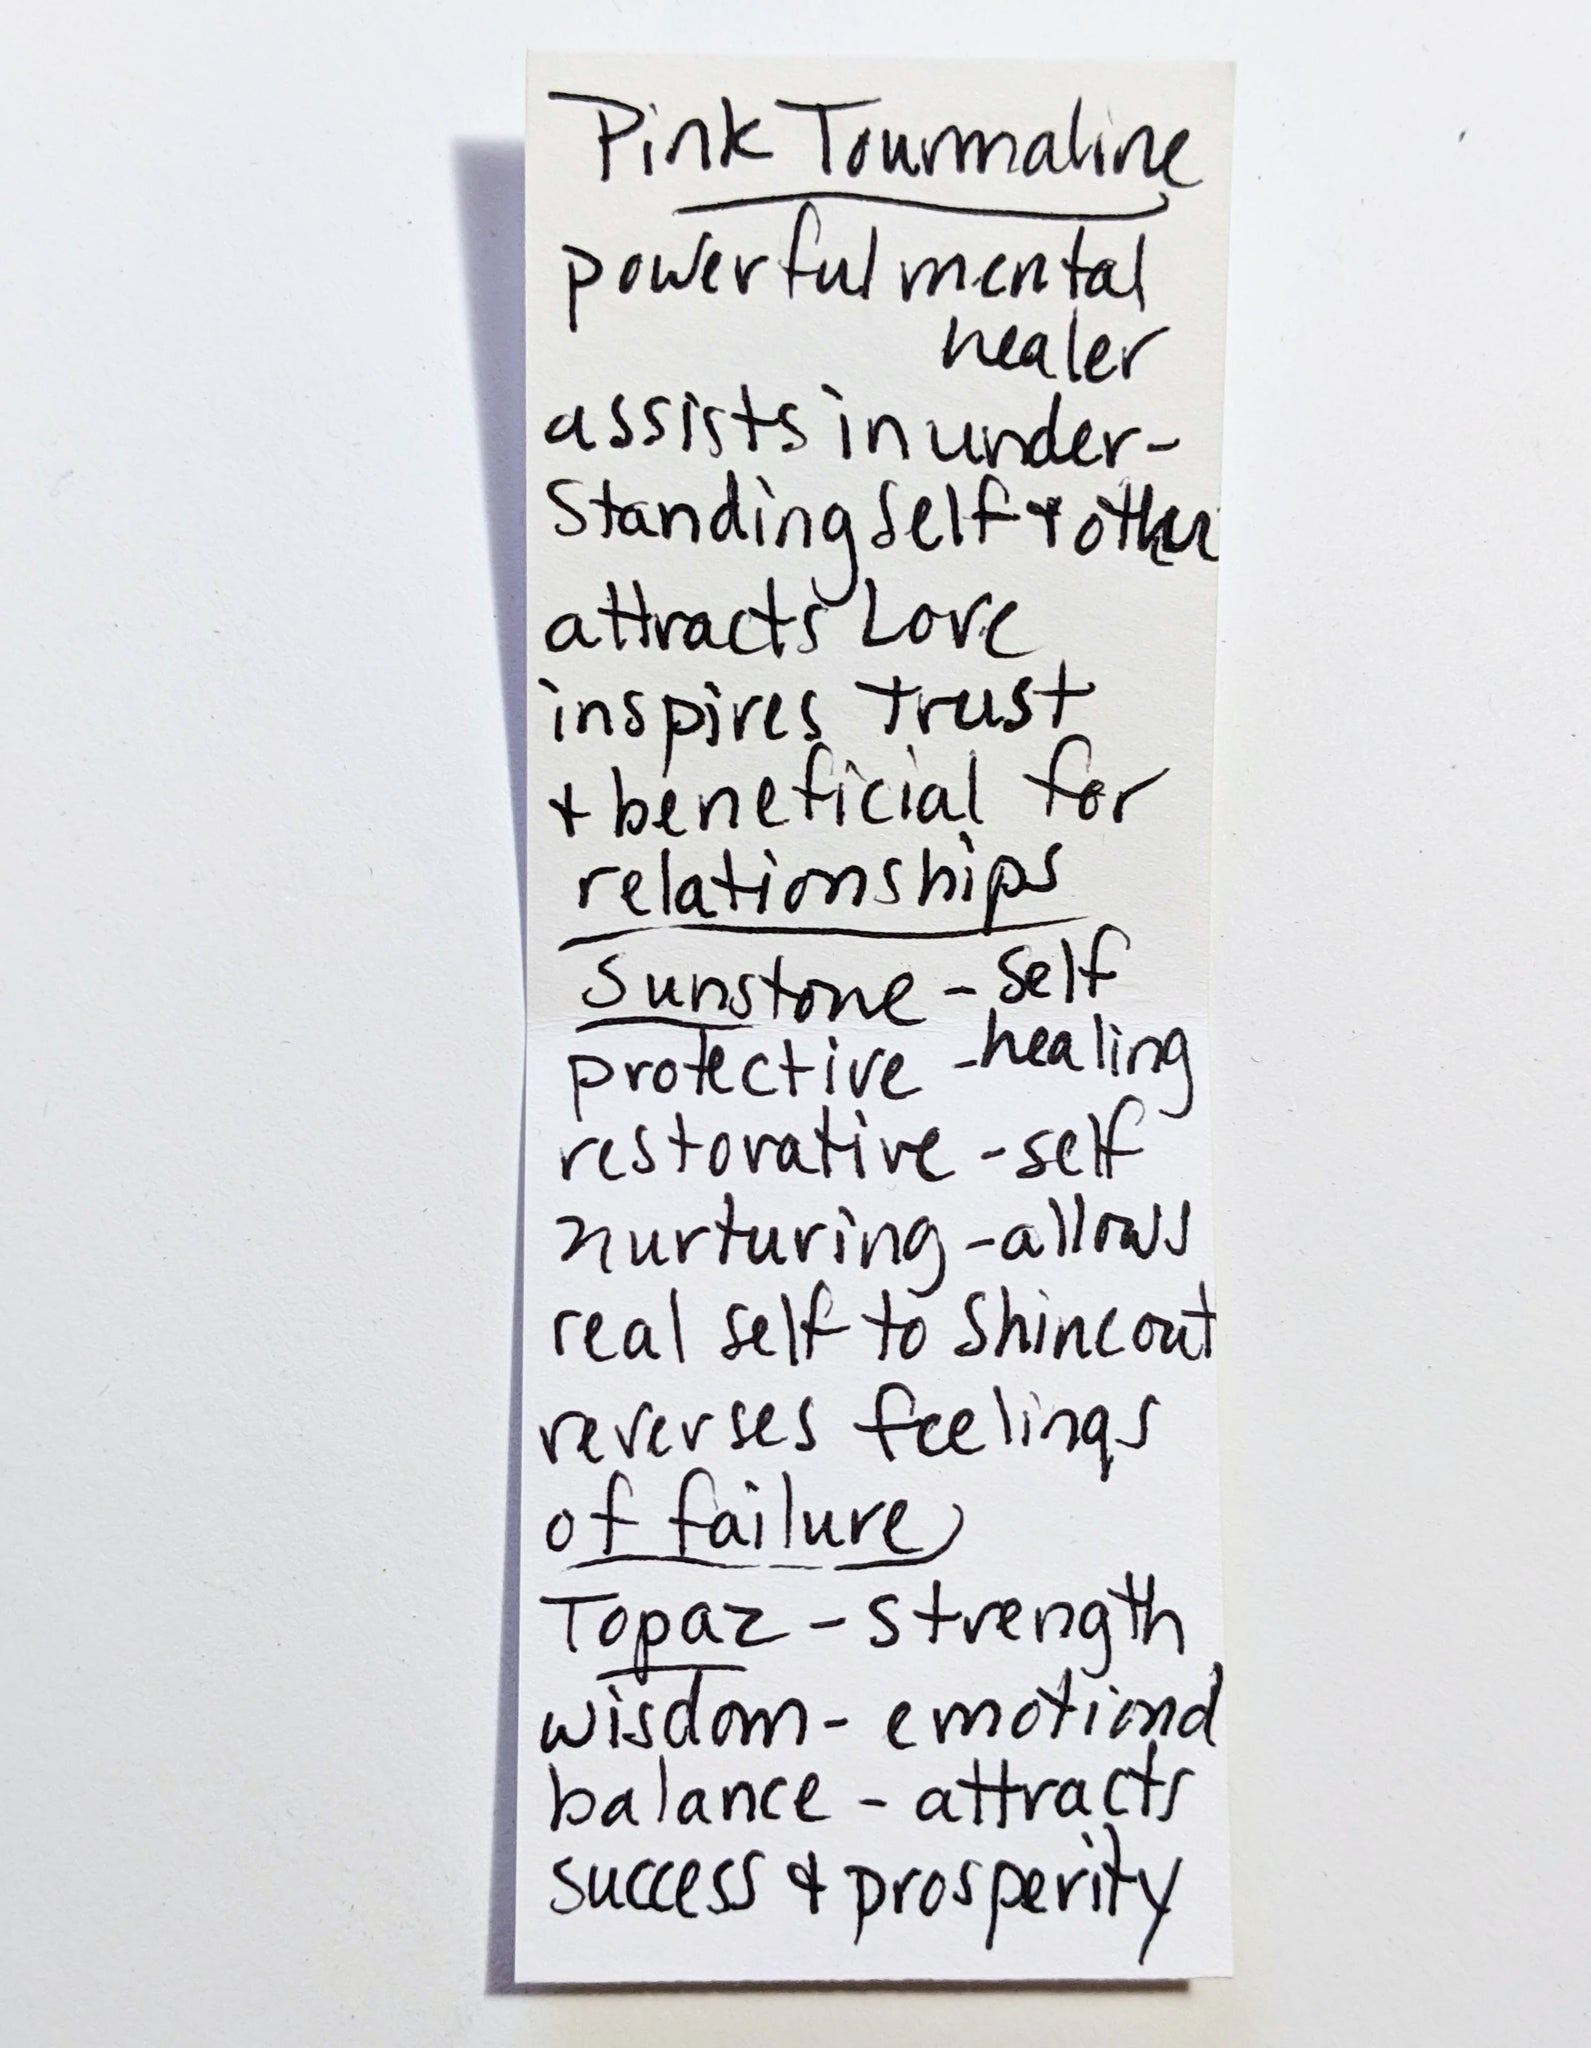 Pink Tourmaline
powerful mental
healer
assists in under-
standing self & other
attracts Love
inspires trust
& beneficial for
relationships
Sunstone - self
protective - healing
restorative - self
nurturing - allows
real self to shine out
reverses feelings
of failure
Topaz - strength
wisdom - emotional
balance - attracts
success & prosperity